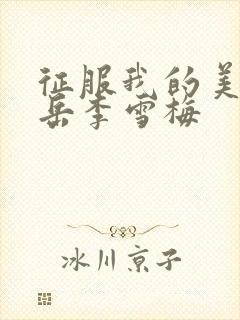 征服我的美
岳李雪梅
冰川京子